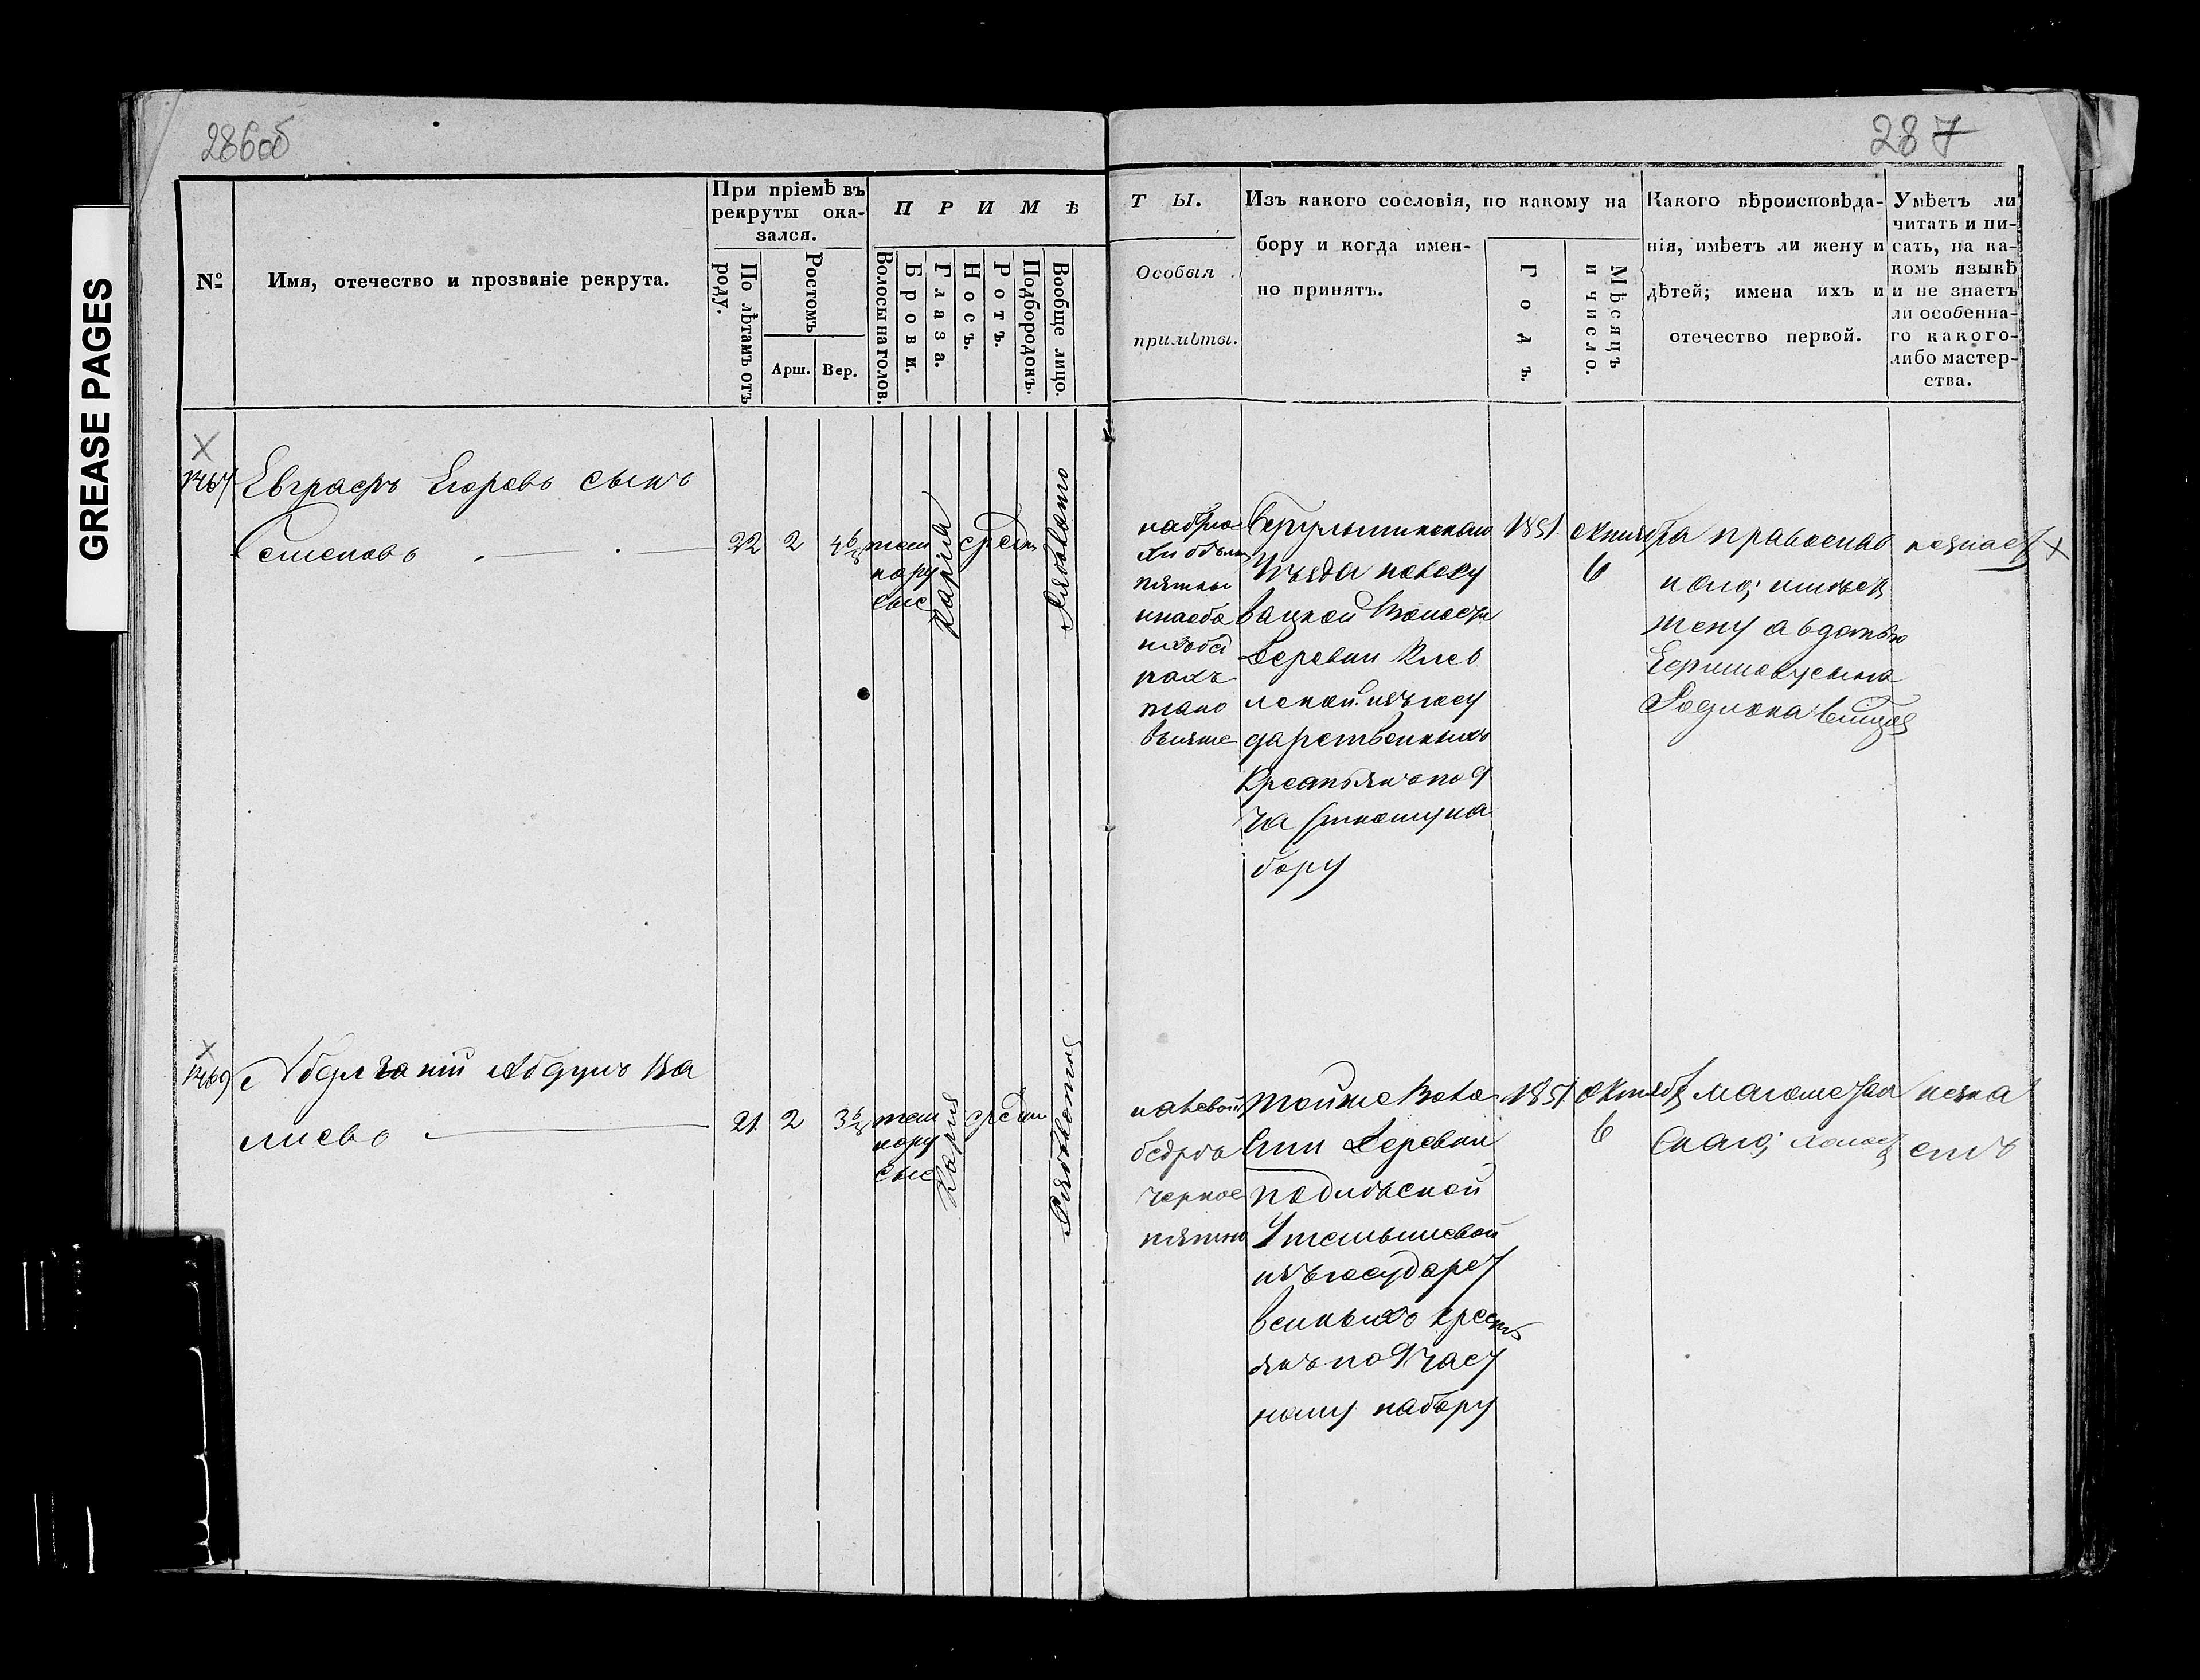 286об
287
GREASE PAGES
№
Имя, отечество и прозваніе рекрута.
При пріемѣ въ
рекруты ока-
зался.
По лѣтамъ отъ
роду.
Ростомъ
Арш.
Вер.
П Р И М Ѣ
Волосы на голов.
Брови.
Глаза.
Носъ.
Ротъ.
Подбородокъ.
Вообще лицо.
Т Ы.
Особыя
примѣты.
Изъ какого сословія, по какому на
бору и когда имен-
но принятъ.
Годъ.
Мѣсяцъ
и число.
Какого вѣроисповѣда-
нія, имѣетъ ли жену и
дѣтей; имена ихъ и
отечество первой.
Умѣетъ ли
читать и пи-
сать, на ка-
комъ языкѣ
и не знаетъ
ли особенна-
го какого-
либо мастер-
ства.
Евграфъ Егоровъ сынъ
Семеновъ
22
2
4 6/8
тем
нору
сые
карія
средн
Рябовато
на брю
пятны
Уѣзда
вацкой Волости
Деревни
изъ госу
дарственныхъ
Крестьянъ по 9
частному на
бору
1851
октября
6
православ
наго; имѣетъ
жену авдотью
незнаетъ
1469
Абдул
Абдулъ Ва
лиевъ
21
2
3 6/8
тем
нору
сые
карія
средн
на левой
бедрѣ
черное
пятно
тойже Воло
сти Деревни
изъ государст
венныхъ крестъ
янъ по 9 част
ному набору
1851
октяб
6
магомета
скаго; холост
незна
етъ